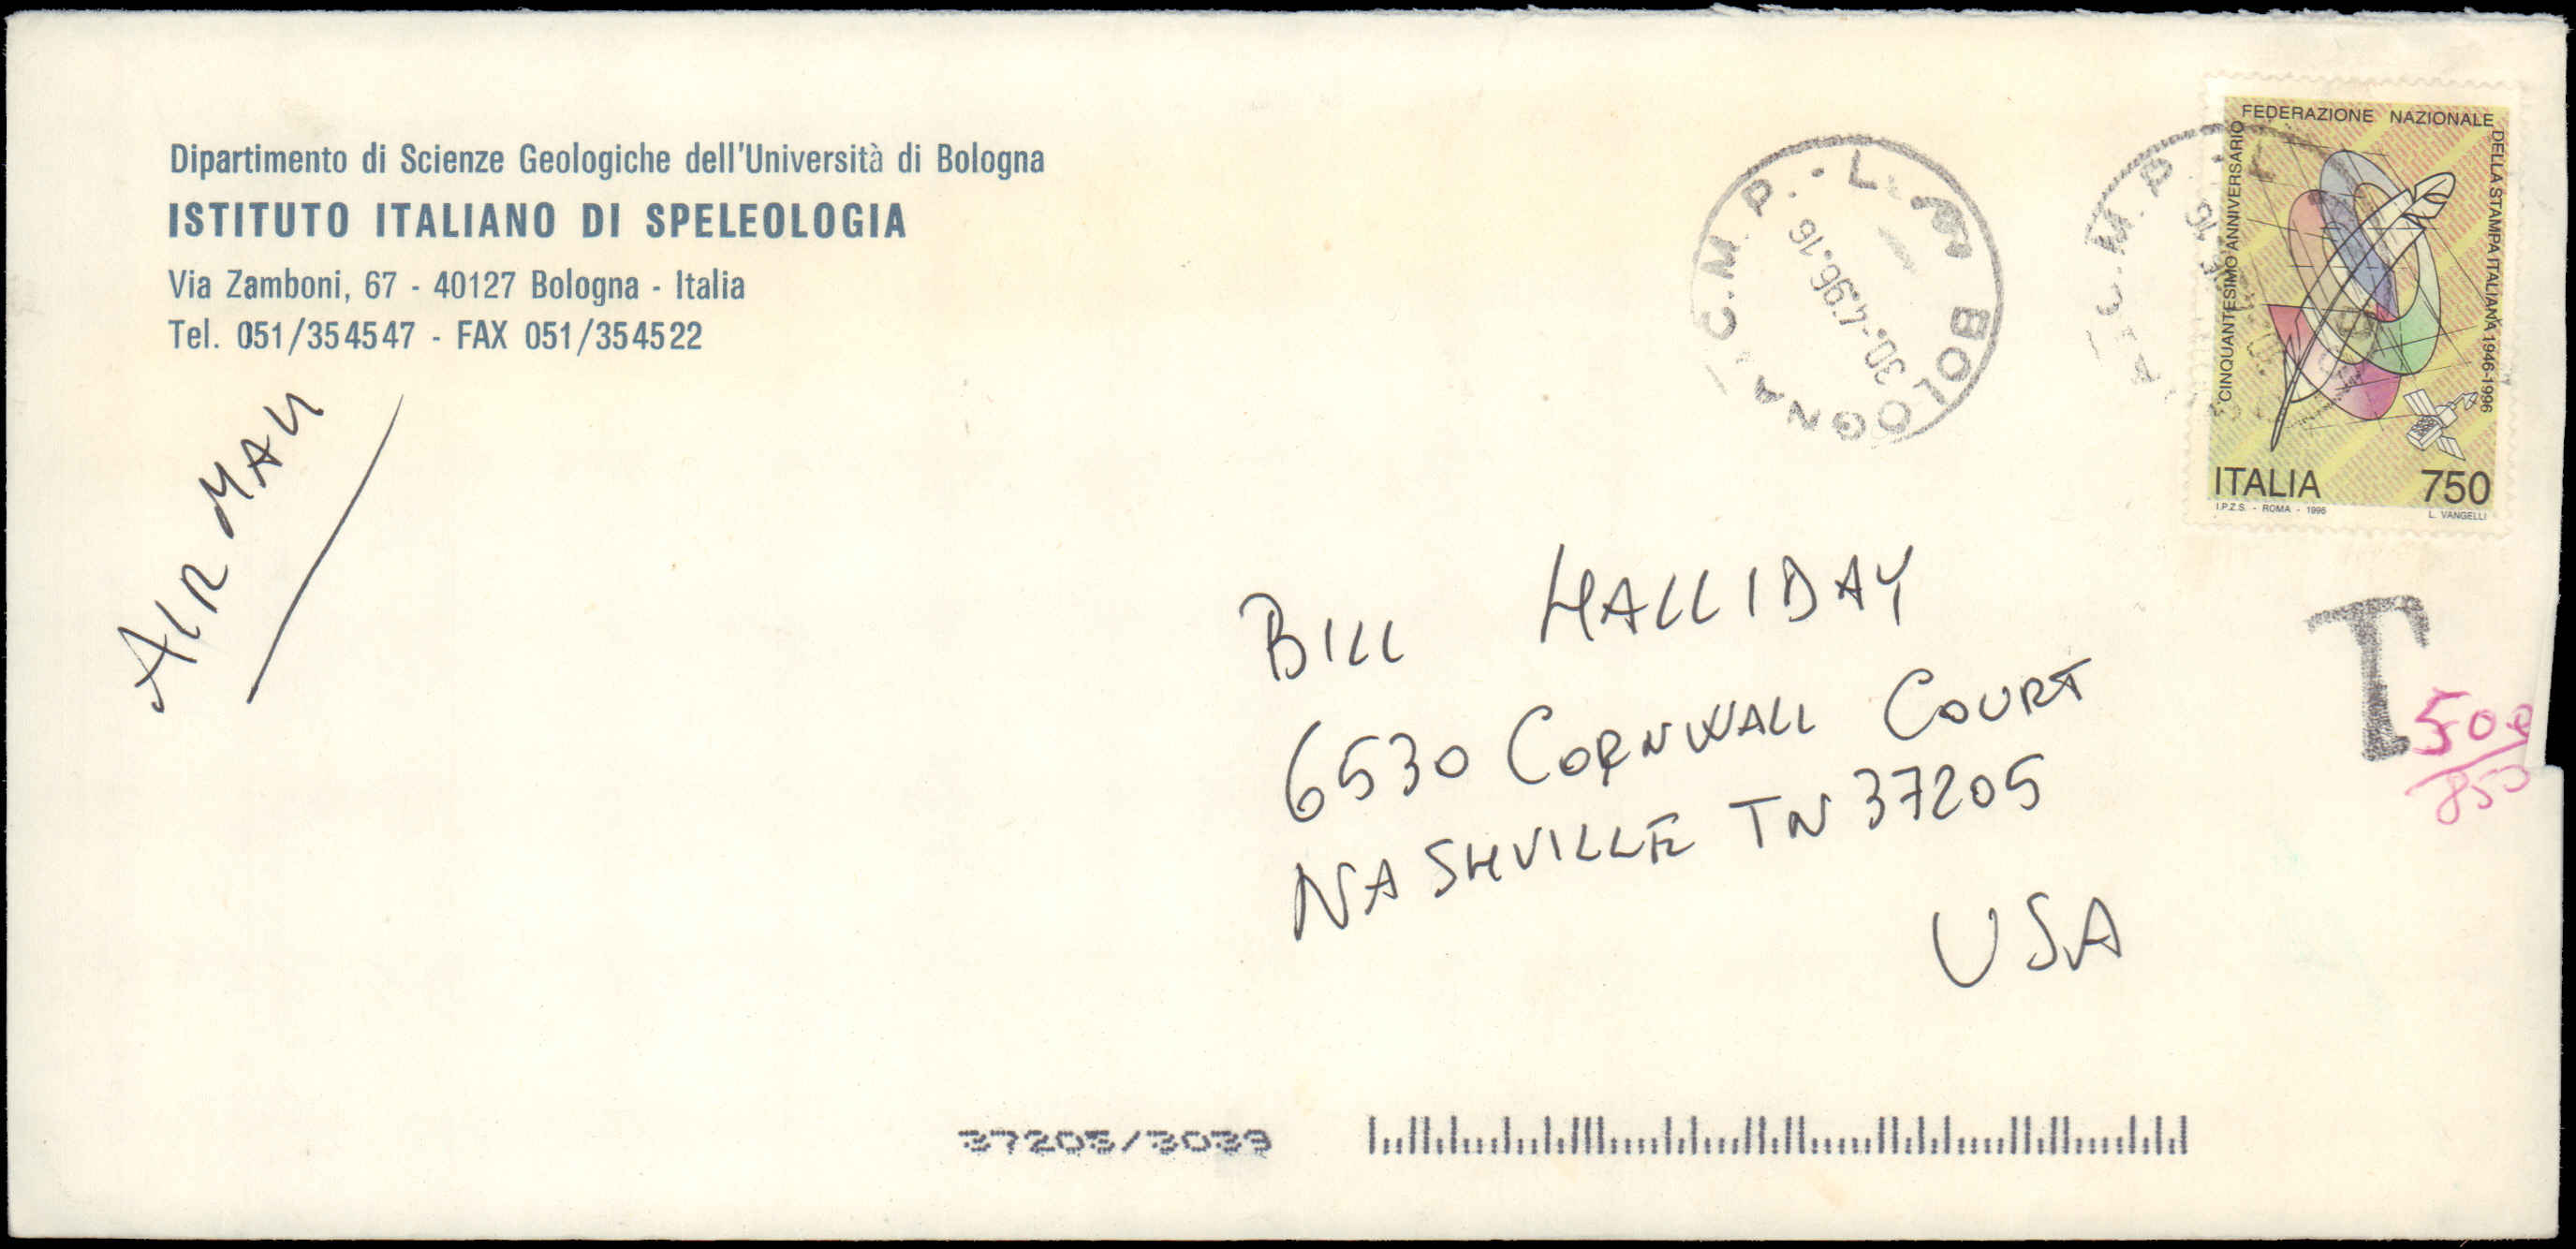 Dipartimento di Scienze Geologiche dell'Università di Bologna
ISTITUTO ITALIANO DI SPELEOLOGIA
Via Zamboni, 67 - 40127 Bologna - Italia
Tel. 051/354547 - FAX 051/354522
AIR MAIL
BOLOGNA C.M.P.
30.-4.96.16
C.M.P.
FEDERAZIONE NAZIONALE
DELLA STAMPA ITALIANA 1946-1996
CINQUANTESIMO ANNIVERSARIO
ITALIA 750
I.P.Z.S. - ROMA - 1996 L. VANGELLI
T
500
850
BILL HALLIDAY
6530 CORNWALL COURT
NASHVILLE TN 37205
USA
37205/3039